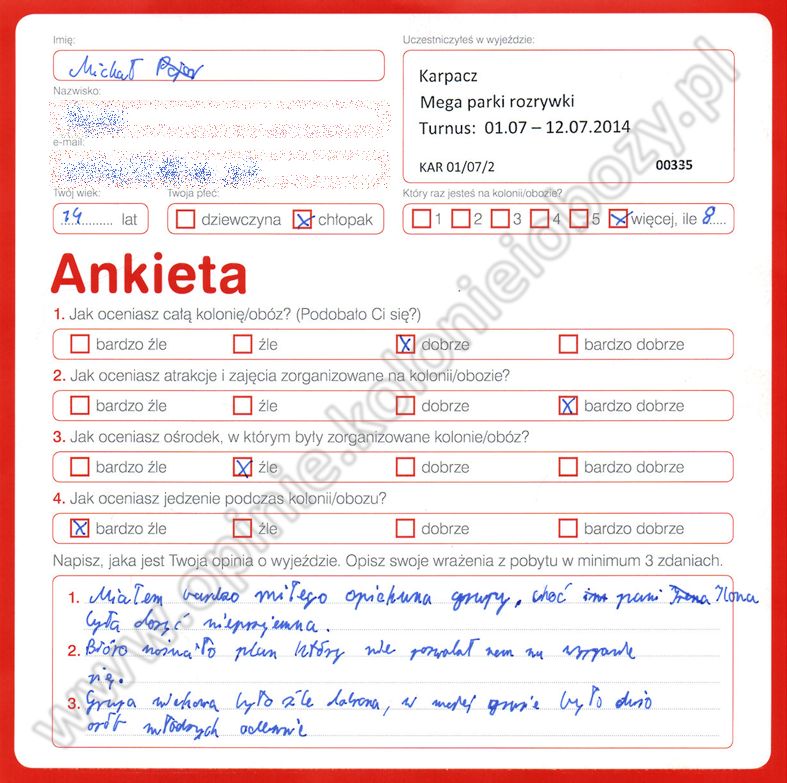 Imię:
Uczestniczyłeś w wyjeździe:
Michał
Karpacz
Mega parki rozrywki
Turnus: 01.07 – 12.07.2014
KAR 01/07/2 00335
Nazwisko:
e-mail:
Twój wiek: Twoja płeć: Który raz jesteś na kolonii/obozie?
14 lat dziewczyna chłopak 1 2 3 4 5 więcej, ile 8
Ankieta
1. Jak oceniasz całą kolonię/obóz? (Podobało Ci się?)
bardzo źle źle dobrze bardzo dobrze
2. Jak oceniasz atrakcje i zajęcia zorganizowane na kolonii/obozie?
bardzo źle źle dobrze bardzo dobrze
3. Jak oceniasz ośrodek, w którym były zorganizowane kolonie/obóz?
bardzo źle źle dobrze bardzo dobrze
4. Jak oceniasz jedzenie podczas kolonii/obozu?
bardzo źle źle dobrze bardzo dobrze
Napisz, jaka jest Twoja opinia o wyjeździe. Opisz swoje wrażenia z pobytu w minimum 3 zdaniach.
1. Miałem bardzo miłego opiekuna grupy, choć pani Ilona
była dosyć nieprzyjemna.
2. Bióro plan który nie pozwalał nam na wyspanie
się.
3. Grupa wiekowa było źle dobrana, w mojej grupie było dużo
osób młodszych odemnie
www.opinie.kolonieiobozy.pl